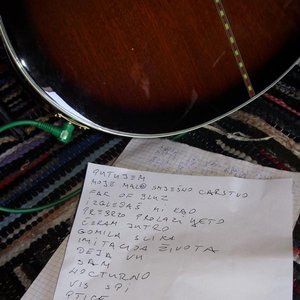 PUTUJEM
MOJE MALO SMJEŠNO CARSTVO
FAR OF BLUZ
IZGLEDAŠ MI KAO
PREBRZO PROLAZI LJETO
ČEKAM JUTRO
GOMILA SLIKA
IMITACIJA ŽIVOTA
DEJA VU
SAM
NOCTURNO
VIS SPI
PTICE